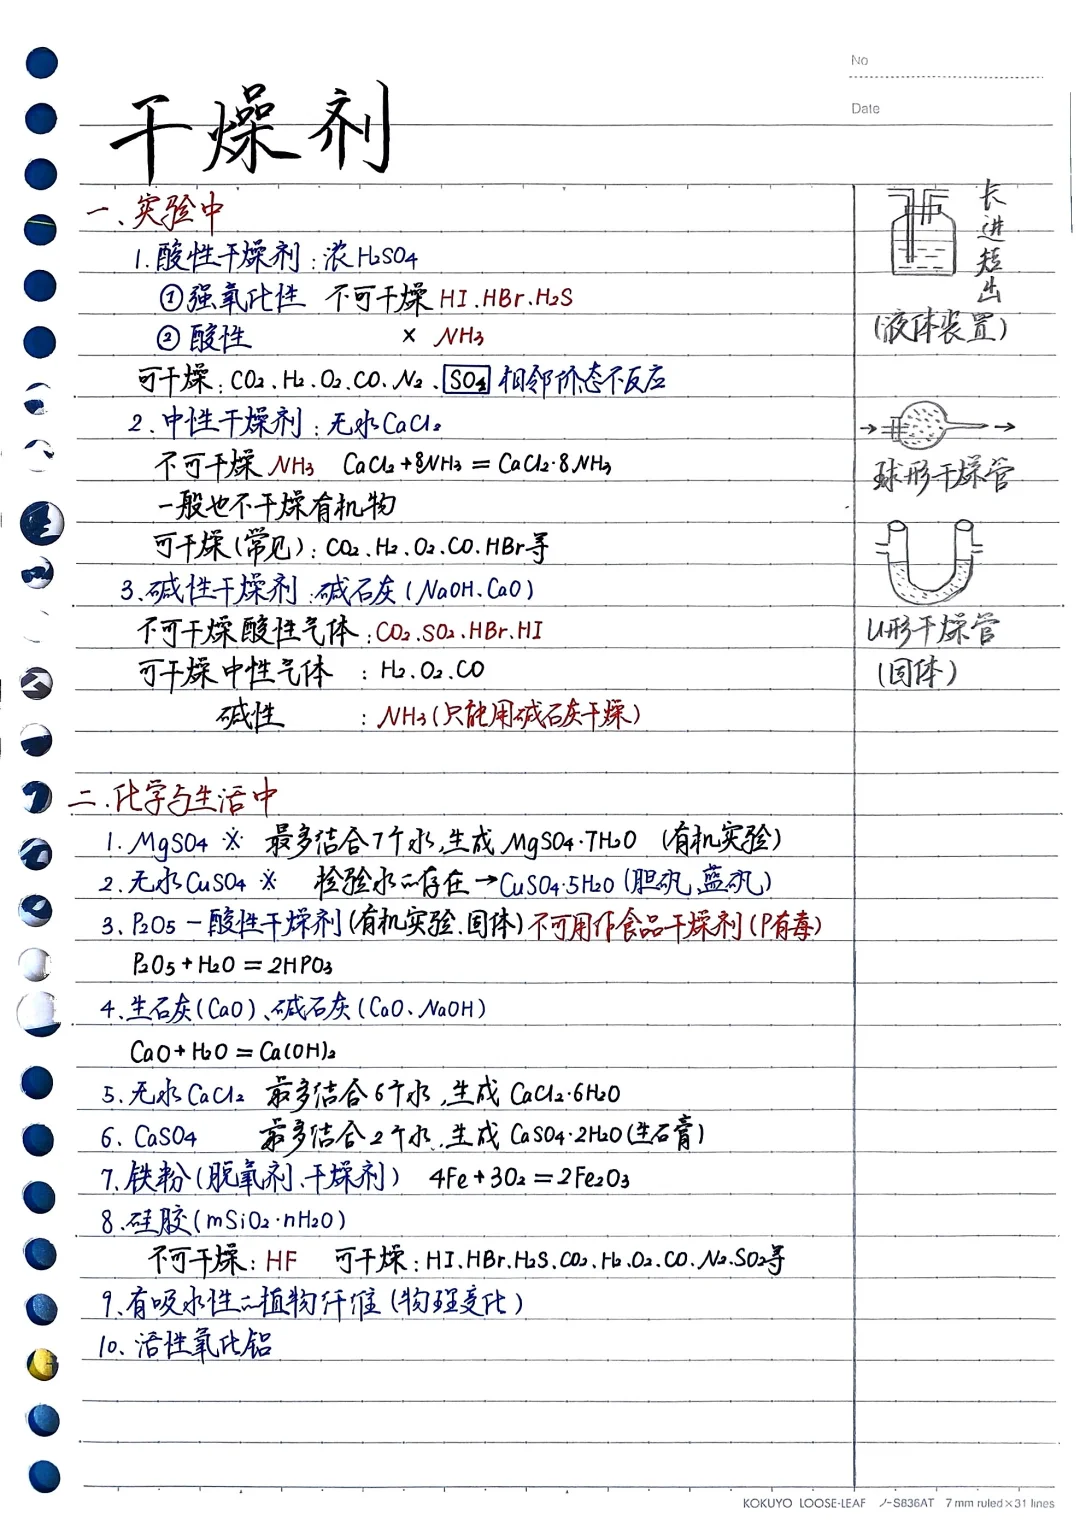 No
Date
干燥剂
一、实验中
1.酸性干燥剂:浓H₂SO₄
①强氧化性 不可干燥 HI.HBr.H₂S
②酸性 × NH₃
可干燥:CO₂.H₂.O₂.CO.N₂、SO₂ 相邻价态不反应
2.中性干燥剂:无水CaCl₂
不可干燥 NH₃ CaCl₂+8NH₃=CaCl₂·8NH₃
一般也不干燥有机物
可干燥(常见):CO₂.H₂.O₂.CO.HBr等
3.碱性干燥剂:碱石灰(NaOH.CaO)
不可干燥酸性气体:CO₂.SO₂.HBr.HI
可干燥中性气体:H₂.O₂.CO
碱性:NH₃(只能用碱石灰干燥)
长进短出
(液体装置)
球形干燥管
U形干燥管
(固体)
二.化学与生活中
1.MgSO₄ ※ 最多结合7个水,生成MgSO₄·7H₂O (有机实验)
2.无水CuSO₄ ※ 检验水の存在→CuSO₄·5H₂O(胆矾、蓝矾)
3.P₂O₅—酸性干燥剂(有机实验.固体)不可用作食品干燥剂(P有毒)
P₂O₅+H₂O=2HPO₃
4.生石灰(CaO)、碱石灰(CaO、NaOH)
CaO+H₂O=Ca(OH)₂
5.无水CaCl₂ 最多结合6个水,生成CaCl₂·6H₂O
6.CaSO₄ 最多结合2个水,生成CaSO₄·2H₂O(生石膏)
7.铁粉(脱氧剂、干燥剂) 4Fe+3O₂=2Fe₂O₃
8.硅胶(mSiO₂·nH₂O)
不可干燥:HF 可干燥:HI.HBr.H₂S.CO₂.H₂.O₂.CO.N₂.SO₂等
9.有吸水性の植物纤维(物理变化)
10.活性氧化铝
KOKUYO LOOSE-LEAF ノ-S836AT 7mm ruled×31 lines